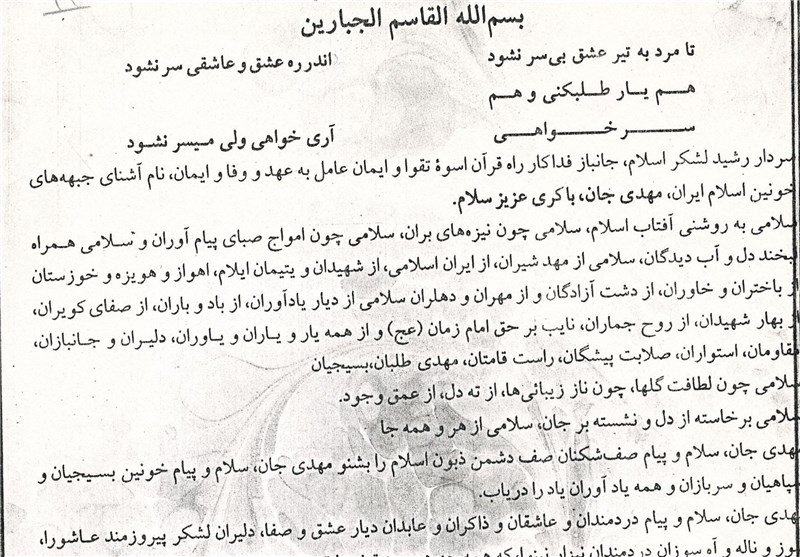 بسم‌الله القاسم الجبارین
تا مرد به تیر عشق بی‌سر نشود اندر ره عشق و عاشقی سر نشود
هم یار طلبکنی و هم
سر خواهی آری خواهی ولی میسر نشود
سردار رشید لشکر اسلام، جانباز فداکار راه قرآن اسوهٔ تقوا و ایمان عامل به عهد و وفا و ایمان، نام آشنای جبهه‌های
خونین اسلام ایران، مهدی جان، باکری عزیز سلام.
سلامی به روشنی آفتاب اسلام، سلامی چون نیزه‌های بران، سلامی چون امواج صبای پیام آوران و سلامی همراه
لبخند دل و آب دیدگان، سلامی از مهد شیران، از ایران اسلامی، از شهیدان و یتیمان ایلام، اهواز و هویزه و خوزستان
از باختران و خاوران، از دشت آزادگان و از مهران و دهلران سلامی از دیار یادآوران، از باد و باران، از صفای کویران،
از بهار شهیدان، از روح جماران، نایب بر حق امام زمان (عج) و از همه یار و یاران و یاوران، دلیران و جانبازان،
مقاومان، استواران، صلابت پیشگان، راست قامتان، مهدی طلبان،بسیجیان
سلامی چون لطافت گلها، چون ناز زیبائی‌ها، از ته دل، از عمق وجود.
سلامی برخاسته از دل و نشسته بر جان، سلامی از هر و همه جا
مهدی جان، سلام و پیام صف‌شکنان صف دشمن ذبون اسلام را بشنو مهدی جان، سلام و پیام خونین بسیجیان و
سپاهیان و سربازان و همه یاد آوران یاد را دریاب.
مهدی جان، سلام و پیام دردمندان و عاشقان و ذاکران و عابدان دیار عشق و صفا، دلیران لشکر پیروزمند عاشورا،
سوز و ناله و آه سوزان دردمندان